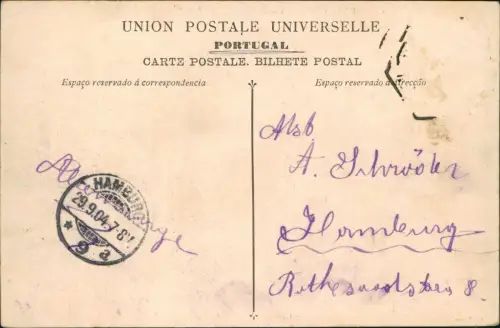 UNION POSTALE UNIVERSELLE
PORTUGAL
CARTE POSTALE. BILHETE POSTAL
Espaço reservado á correspondencia
Espaço reservado á direcção
A. Schröder
Hamburg
8.
HAMBURG
29.9.04.7-8V
* 9 a